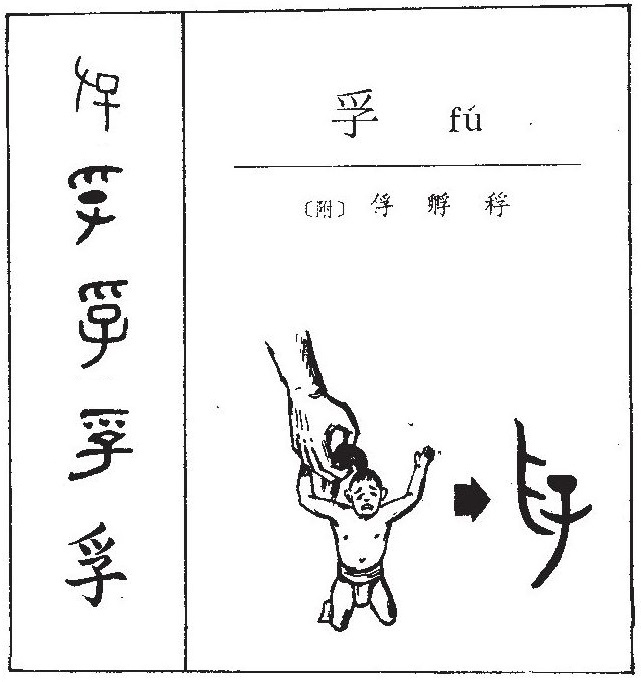 孚 fú
〔附〕 俘 孵 稃
孚